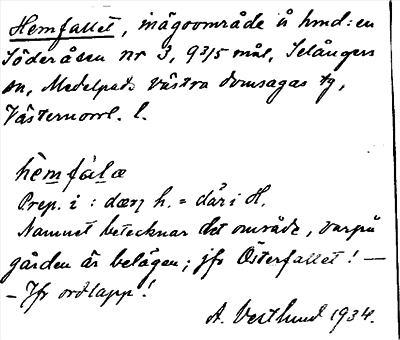 Hemfallet, inägoområde å hmd: en
Söderåsen nr 3, 93/5 mål, Selångers
sn, Medelpads västra domsagas tg,
Västernorrl. l.
hèmfàlæ
Prep. i : dæɳ h. = där i H.
Namnet betecknar det område, varpå
gården är belägen; jfr Österfallet! —
- Jfr ordlapp!
A. Vestlund 1934.